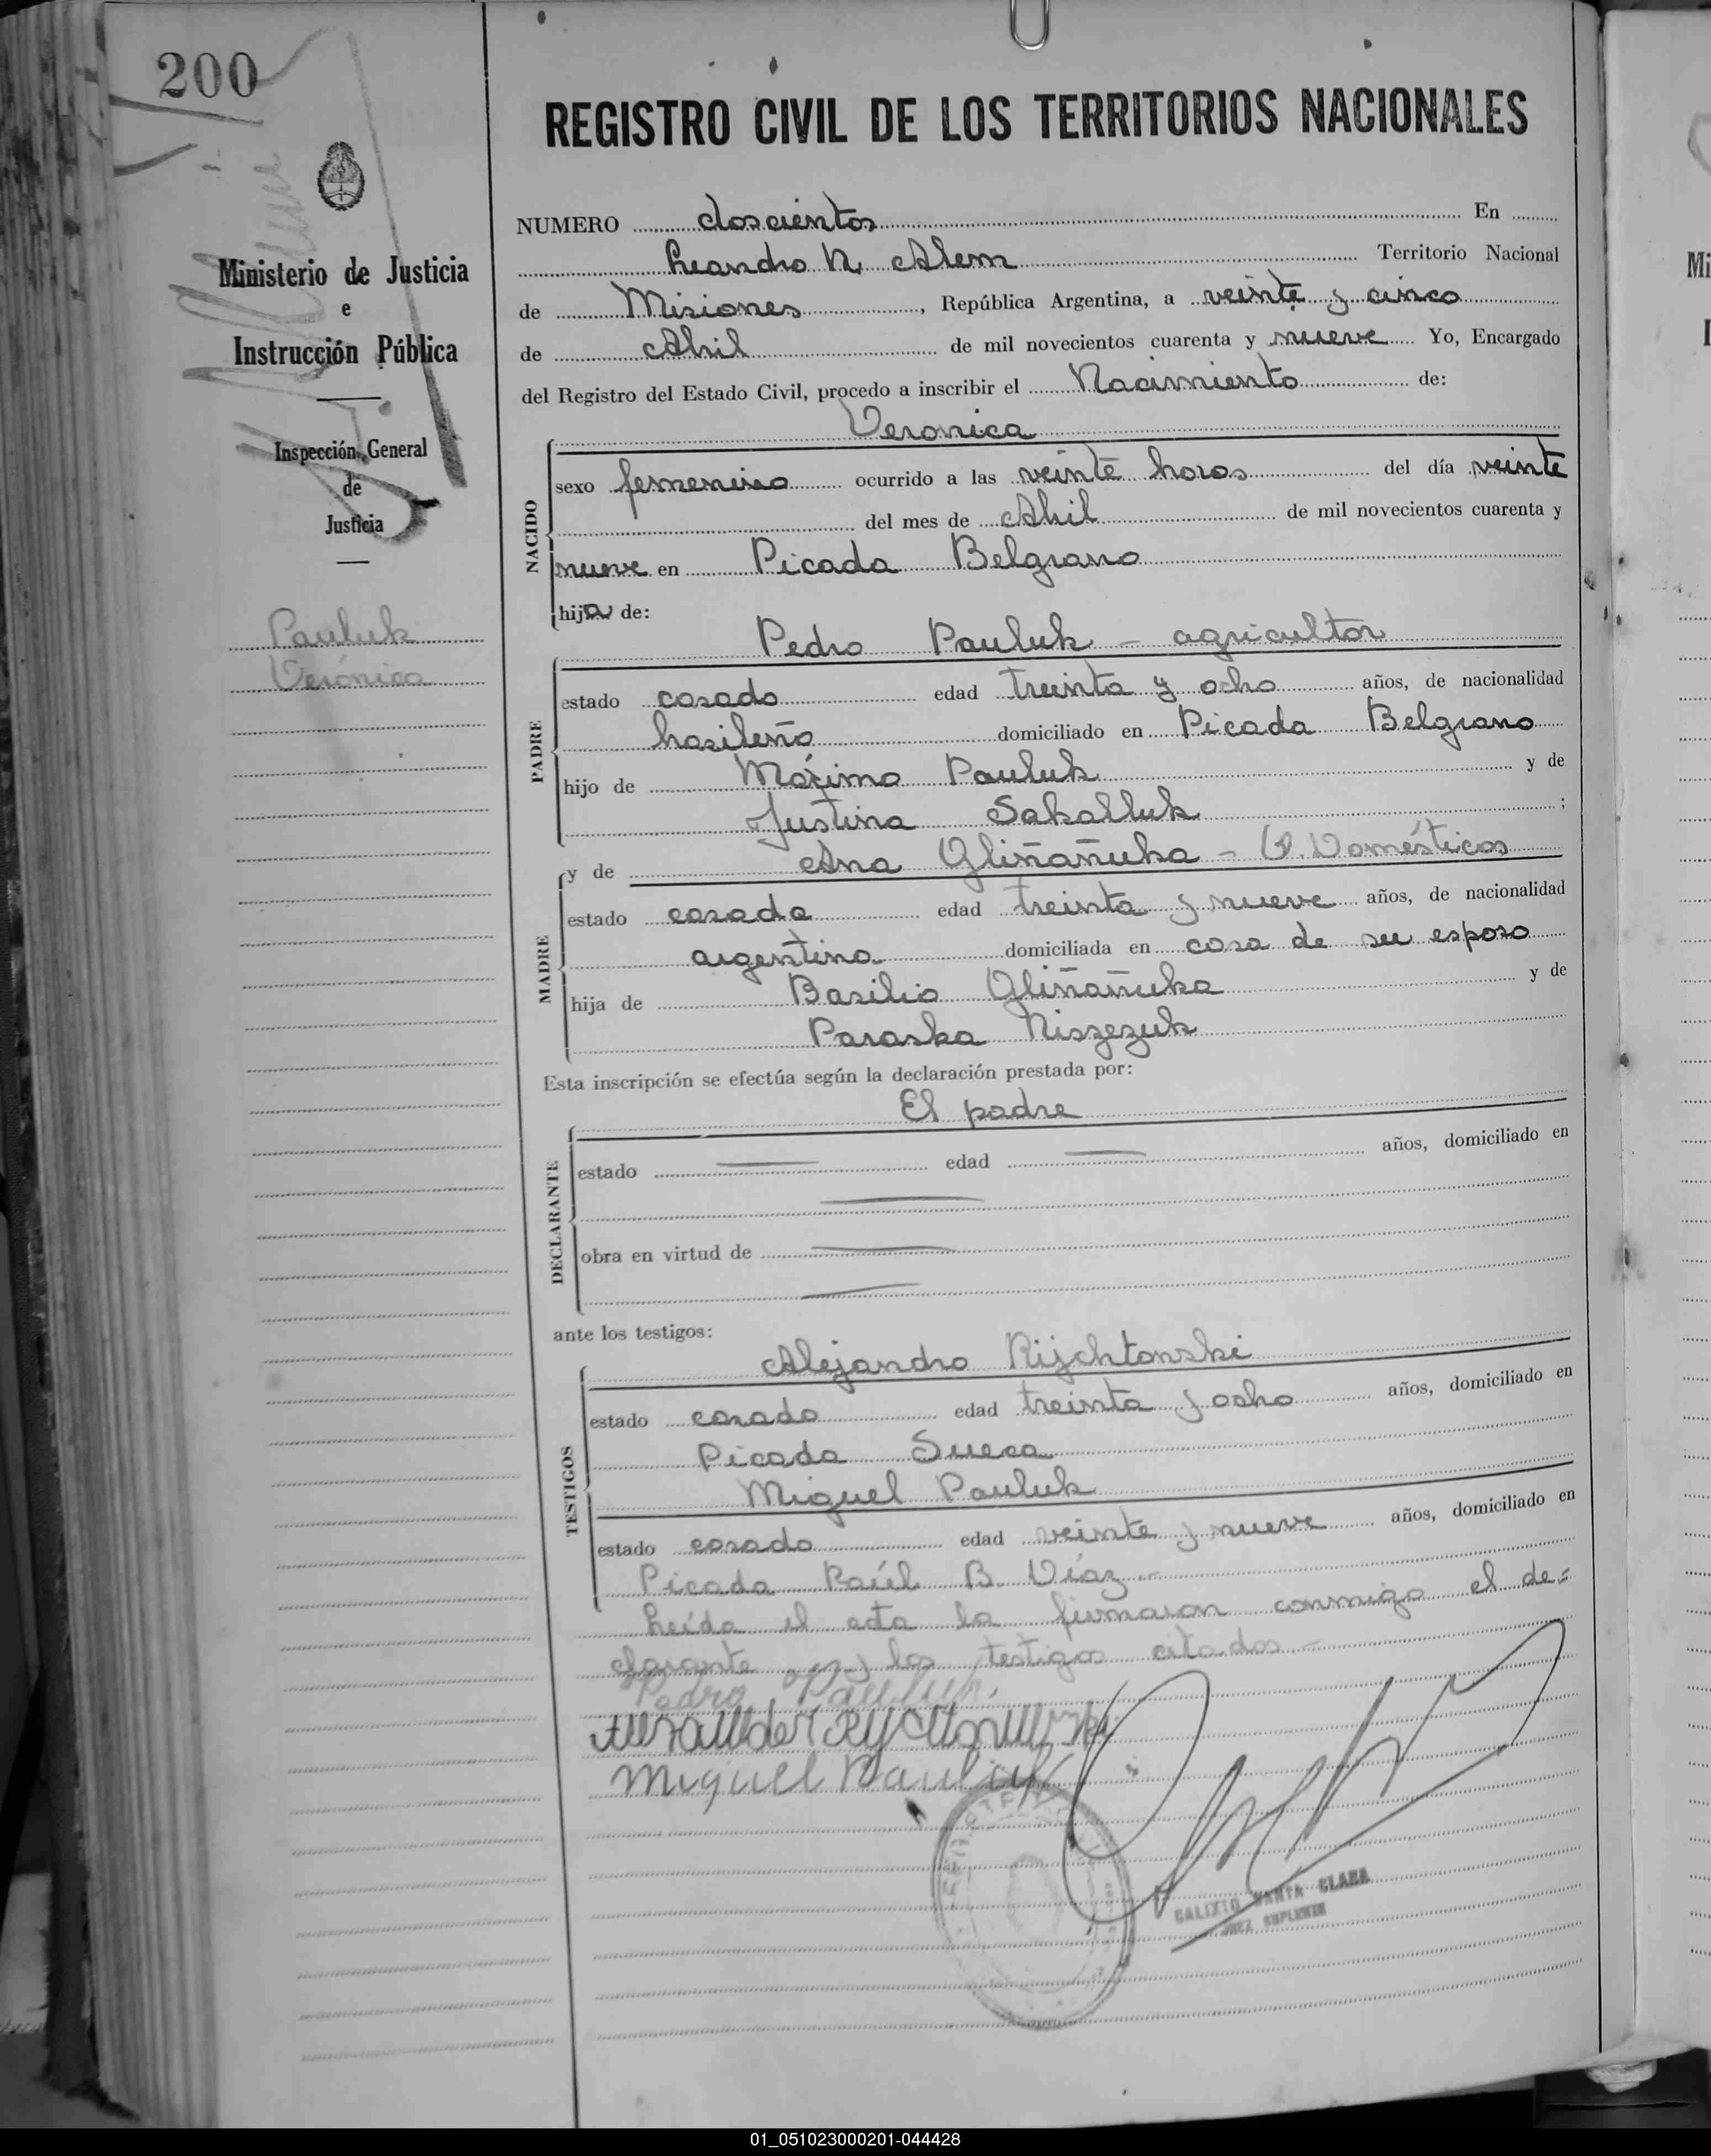 200
Ministerio de Justicia
e
Instrucción Pública
Inspección General
de
Justicia
Pauluk
Verónica
REGISTRO CIVIL DE LOS TERRITORIOS NACIONALES
NUMERO doscientos En
Leandro N. Alem Territorio Nacional
de Misiones, República Argentina, a veinte y cinco
de Abril de mil novecientos cuarenta y nueve Yo, Encargado
del Registro del Estado Civil, procedo a inscribir el Nacimiento de:
Veronica
NACIDO
sexo femenino ocurrido a las veinte horas del día veinte
del mes de Abril de mil novecientos cuarenta y
nueve en Picada Belgrano
hija de:
Pedro Pauluk - agricultor
PADRE
estado casado edad treinta y ocho años, de nacionalidad
brasileño domiciliado en Picada Belgrano
hijo de Máximo Pauluk y de
Justina Sakalluk;
y de Ana Gliñañuka - Q. Domésticos
MADRE
estado casada edad treinta y nueve años, de nacionalidad
argentina domiciliada en casa de su esposo
hija de Basilio Gliñañuka y de
Paraska Niszezuk
Esta inscripción se efectúa según la declaración prestada por:
El padre
DECLARANTE
estado edad años, domiciliado en
obra en virtud de
ante los testigos:
Alejandro Rijchtonski
TESTIGOS
estado casado edad treinta y ocho años, domiciliado en
Picada Sueca
Miguel Pauluk
estado casado edad veinte y nueve años, domiciliado en
Picada Raúl B. Díaz.-
Leída el acta la firmaron conmigo el de=
clarante y los testigos citados.-
Pedro Pauluk
Miguel Pauluk
CALIXTO SANTA CLARA
JUEZ SUPLENTE
01_051023000201-044428